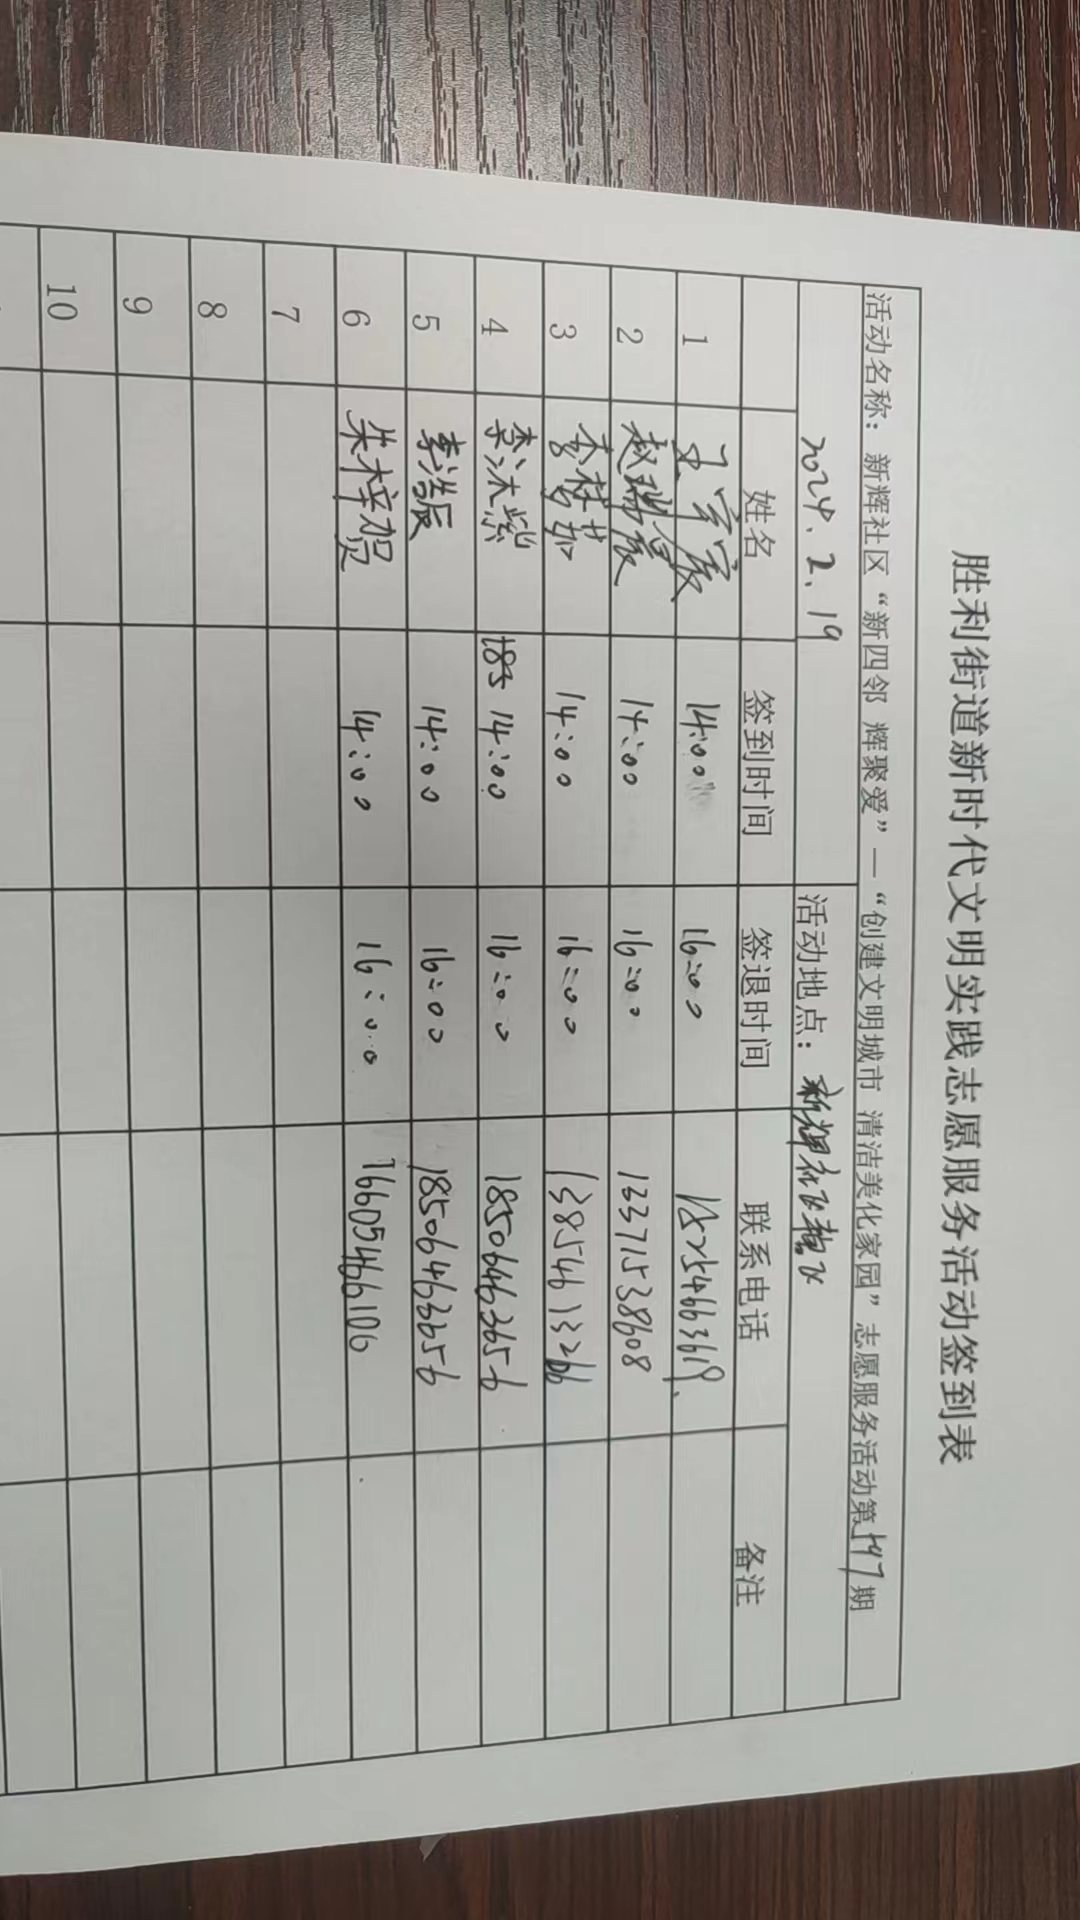 胜利街道新时代文明实践志愿服务活动签到表
活动名称：新辉社区“新四邻 辉聚爱”—“创建文明城市 清洁美化家园”志愿服务活动第147期
2024.2.19 活动地点：新辉社区
姓名 签到时间 签退时间 联系电话 备注
1 王 14:00 16:00 18254663619
2 赵瑞晨 14:00 16:00 13371538608
3 李梦茹 14:00 16:00 13854613266
4 李沐紫 14:00 16:00 18506463656
5 李浩辰 14:00 16:00 18506463656
6 朱梓贺 14:00 16:00 16605466106
7
8
9
10